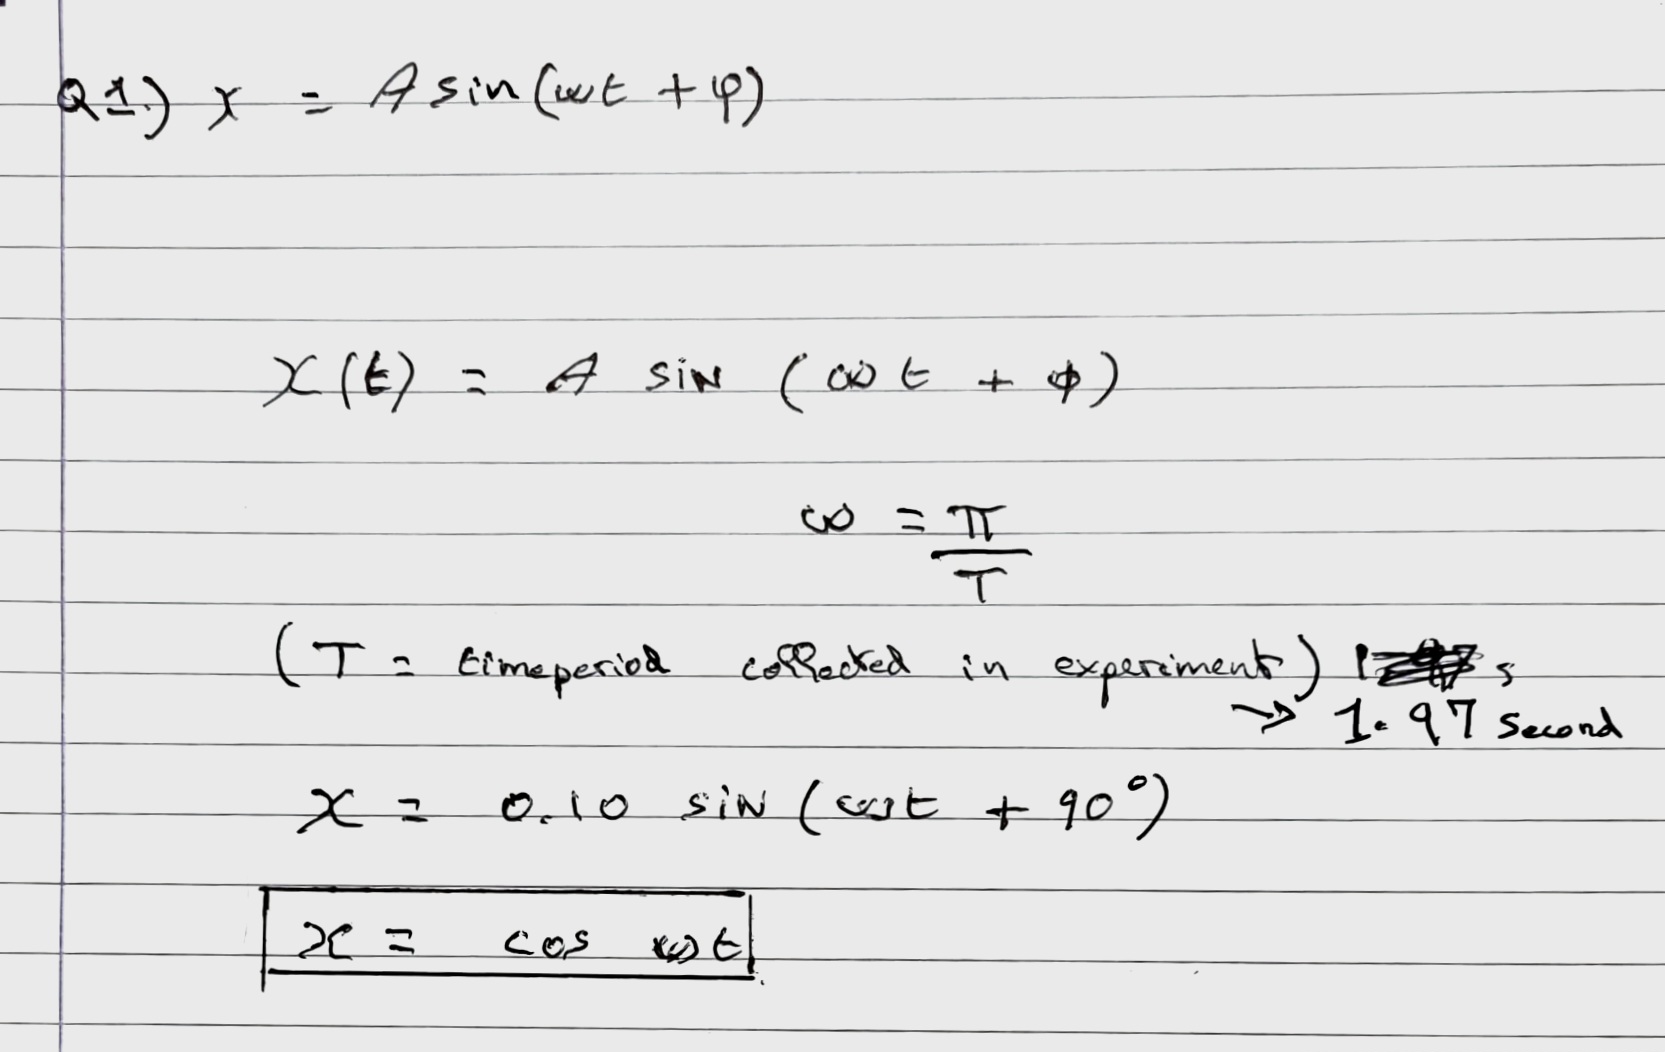 Q1.) x = A sin(ωt + φ)
x(t) = A sin (ωt + φ)
ω = π
T
(T = timeperiod collected in experiment) s
→ 1.97 second
x = 0.10 sin (ωt + 90°)
x = cos ωt